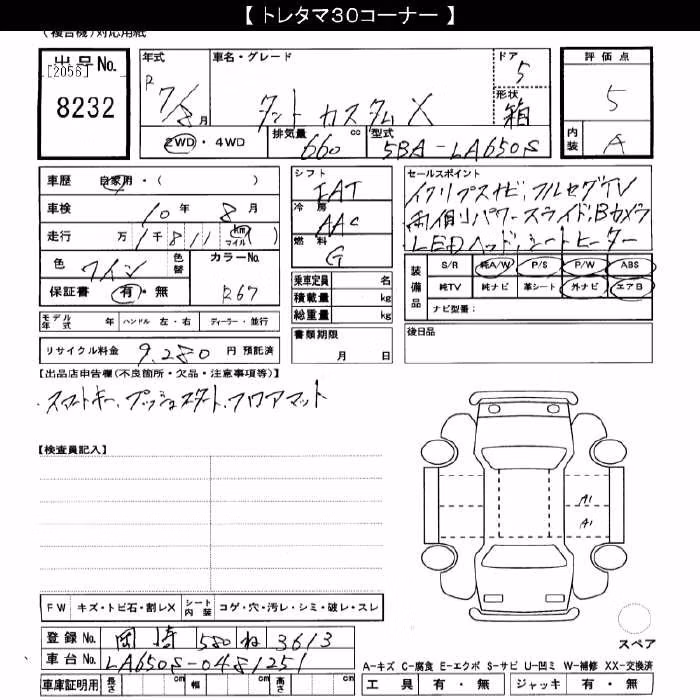 【 トレタマ30コーナー 】
(複合機)対応用紙
出品No.
[2056]
8232
年式
R 7/8月
車名・グレード
タント カスタム X
ドア
5
形状
箱
評価点
5
内装
A
2WD・4WD
排気量 660 cc
型式 5BA-LA650S
車歴 自家用・( )
車検 10年 8月
走行 万1千811(km マイル)
色 ワイン 色替
カラーNo. R67
保証書 有・無
モデル年式 年 ハンドル 左・右 ディーラー・並行
リサイクル料金 9,280 円 預託済
シフト
FAT
冷房
AAC
燃料
G
乗車定員 名
積載量 kg
総重量 kg
書類期限
月 日
セールスポイント
イクリプスナビ,フルセグTV
両側パワースライド,Bカメラ
LEDヘッド,シートヒーター
装備品
S/R 純A/W P/S P/W ABS
純TV 純ナビ 革シート 外ナビ エアB
ナビ型番:
後日品
【出品店申告欄(不良箇所・欠品・注意事項等)】
・スマートキー、プッシュスタート、フロアマット
【検査員記入】
A1
A1
FW キズ・トビ石・割レX シート内装 コゲ・穴・汚レ・シミ・破レ・スレ
スペア
登録No. 岡崎 580 ね 3613
車台No. LA650S-0481251
車庫証明用 長さ cm 幅 cm 高さ cm
A-キズ C-腐食 E-エクボ S-サビ U-凹ミ W-補修 XX-交換済
工具 有・無 ジャッキ 有・無